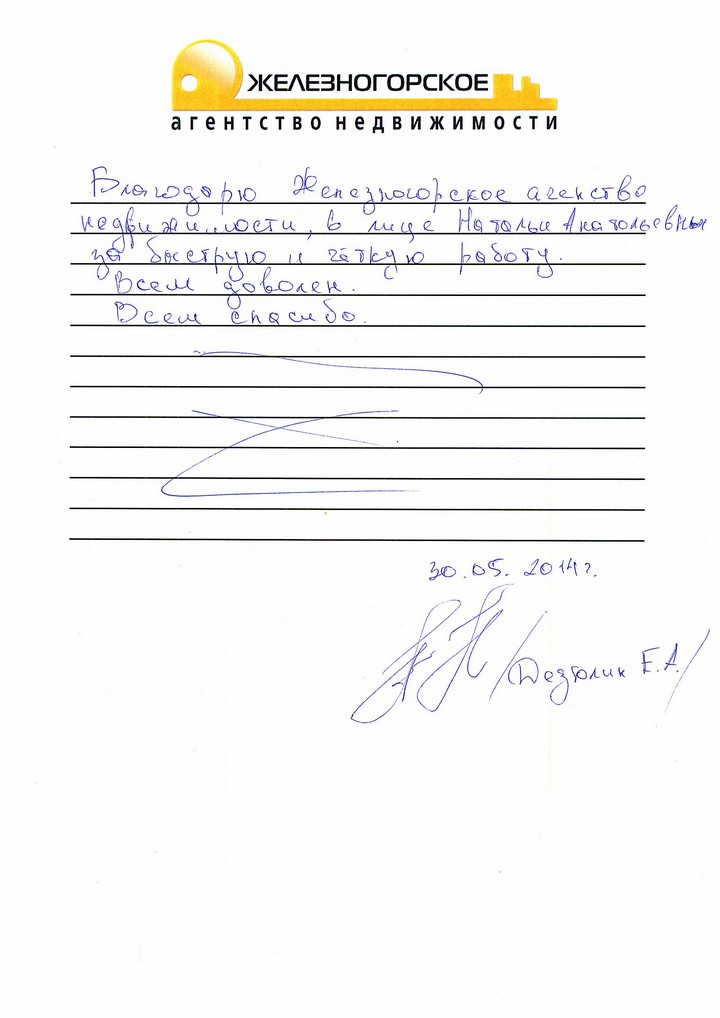 ЖЕЛЕЗНОГОРСКОЕ
агентство недвижимости
Благодарю Железногорское агенство
недвижимости, в лице Натальи Анатольевны
за быструю и чёткую работу.
Всем доволен.
Всем спасибо.
30.05.2014г.
/ Е.А./